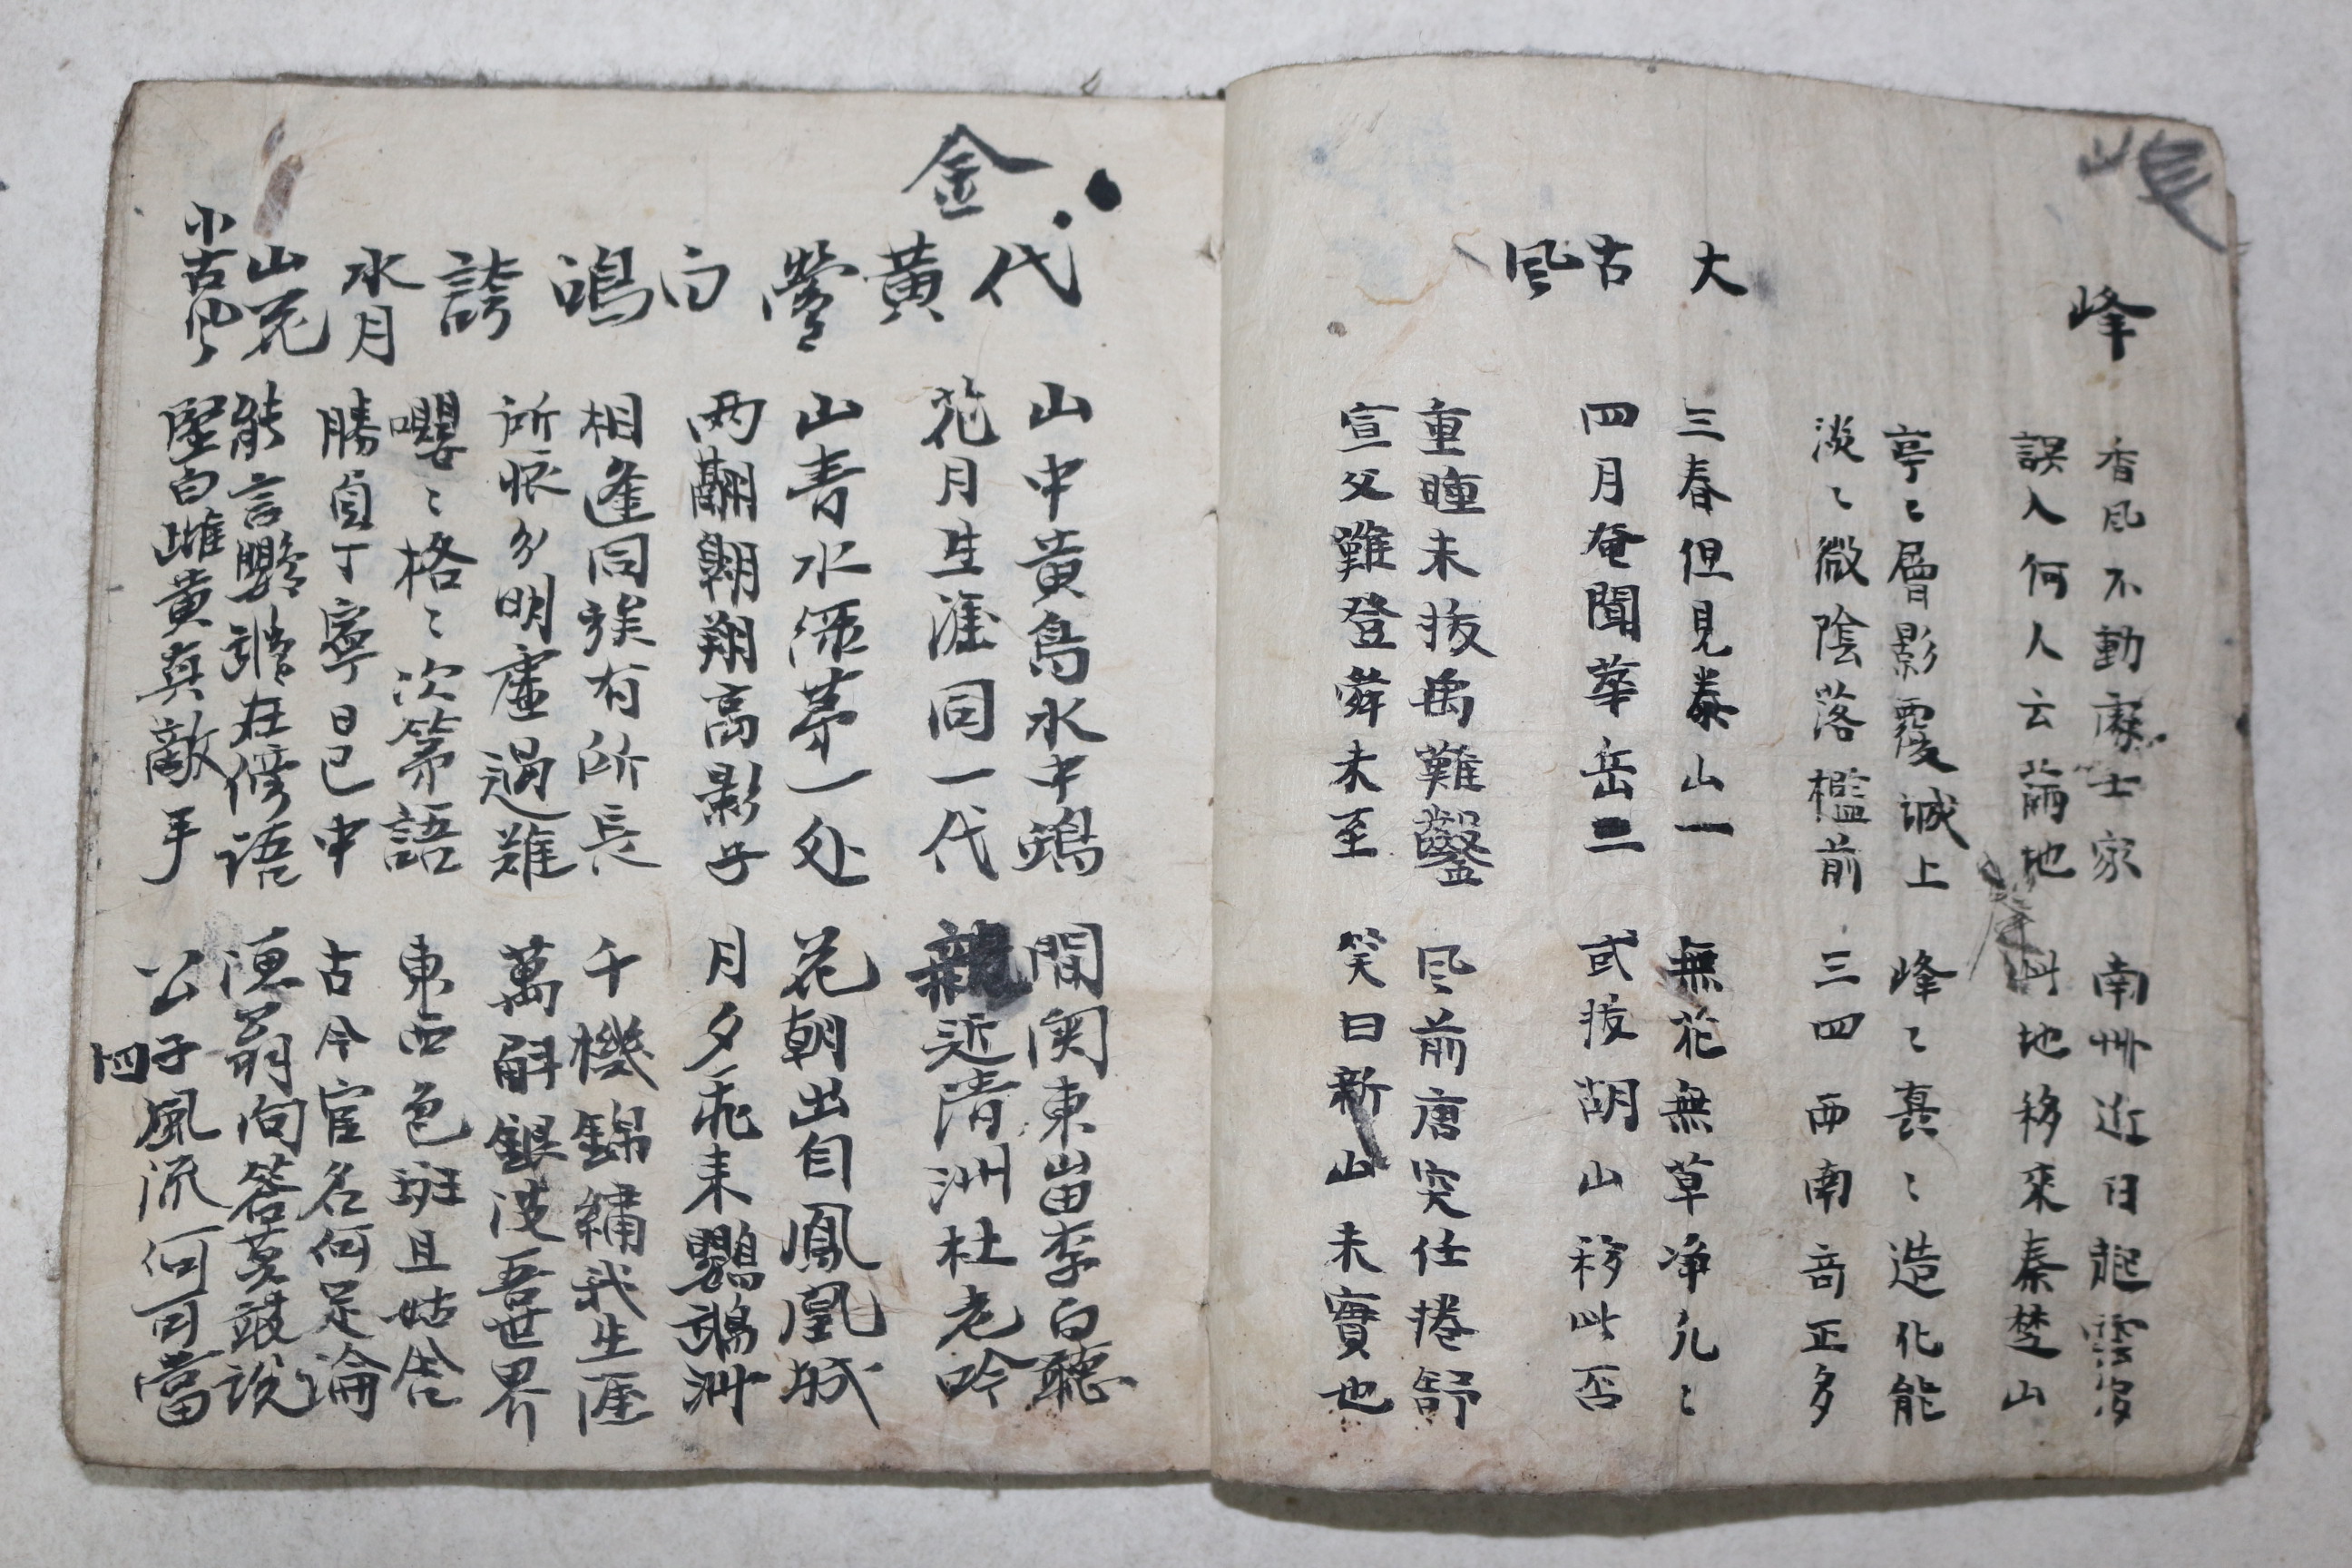 峰
香風不動處士家 南州近日起雲
誤入何人云 地 地移來秦楚山
亭〻層影覆誠上 峰〻 〻造化能
淡〻微陰落檻前 三四西南奇正多
大
古
風
三春但見泰山一 無花無草淨兀〻
四月奄聞華岳二 或拔胡山移此否
重瞳未拔禹難鑿 風前唐突任捲舒
宣父難登舜未至 笑曰新山未實也
金
代
黃
鶯
白
鴻
誇
水月
山花
小古風
山中黃鳥水中鴻 間関東 李白聽
花月生涯同一代 親近清洲杜老吟
山青水綠茅一处 花朝出自鳳凰城
两翩翱翔高影子 月夕飛来鸚鵡洲
相逢同族有所長 千機錦繡我生涯
所恨多明虛過難 萬斛銀波吾世界
嚶〻格〻次第語 東西色斑且姑舍
勝負丁寧日已中 古今官名何足論
能言鸚 在傍語 漁翁向答 鼓說
堅白雌黃真敵手 公子風流何可當
四